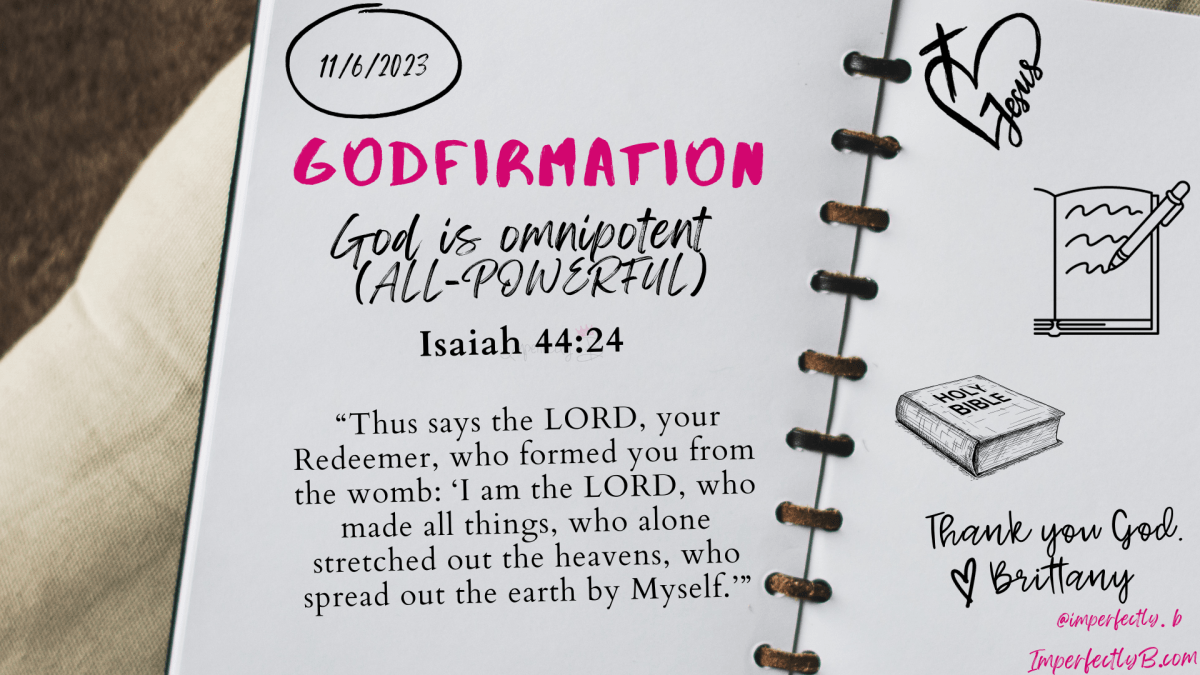 11/6/2023
GODFIRMATION
God is omnipotent
(ALL-POWERFUL)
Isaiah 44:24
“Thus says the LORD, your
Redeemer, who formed you from
the womb: ‘I am the LORD, who
made all things, who alone
stretched out the heavens, who
spread out the earth by Myself.’”
Jesus
HOLY
BIBLE
Thank you God.
Brittany
@imperfectly.b
ImperfectlyB.com